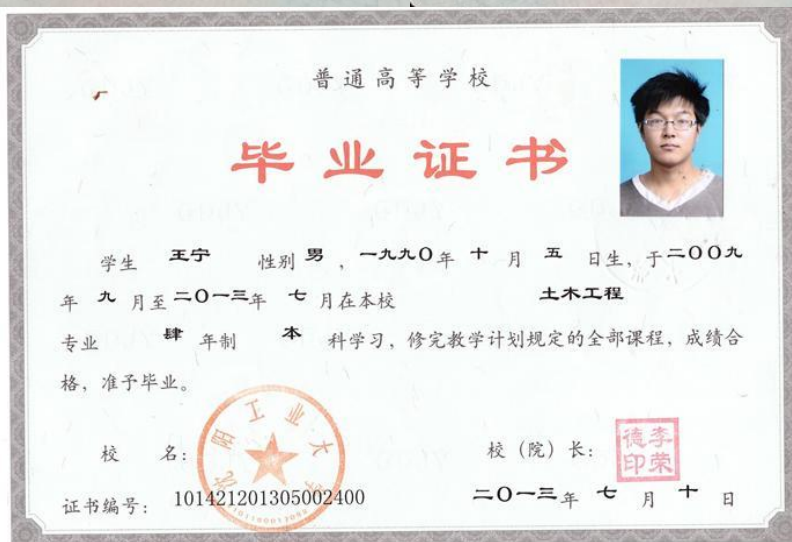 普通高等学校
毕业证书
学生 王宁 性别 男 ，一九九〇年 十 月 五 日生，于二〇〇九
年 九 月至二〇一三年 七 月在本校 土木工程
专业 肆 年制 本 科学习，修完教学计划规定的全部课程，成绩合
格，准予毕业。
沈阳工业大学
校 名：
校（院）长：
李荣德印
证书编号：101421201305002400
二〇一三年 七 月 十 日